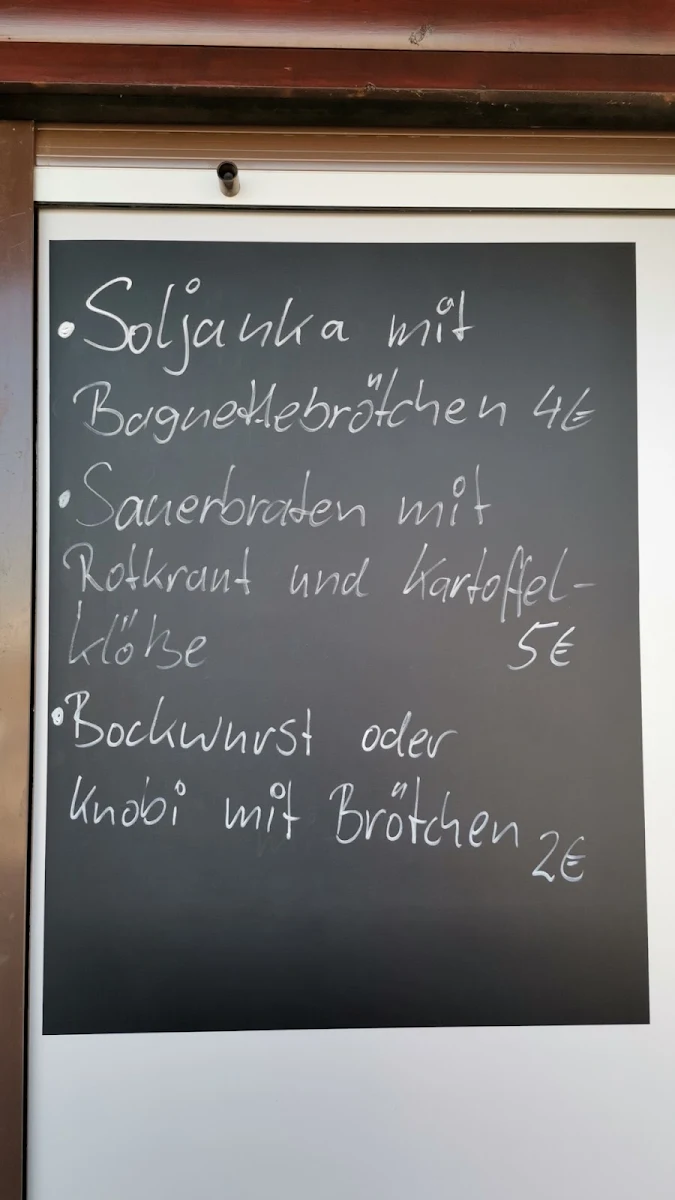 • Soljanka mit
Bagnettebrötchen 4€
• Sauerbraten mit
Rotkraut und Kartoffel-
klöße 5€
• Bockwurst oder
Knobi mit Brötchen 2€